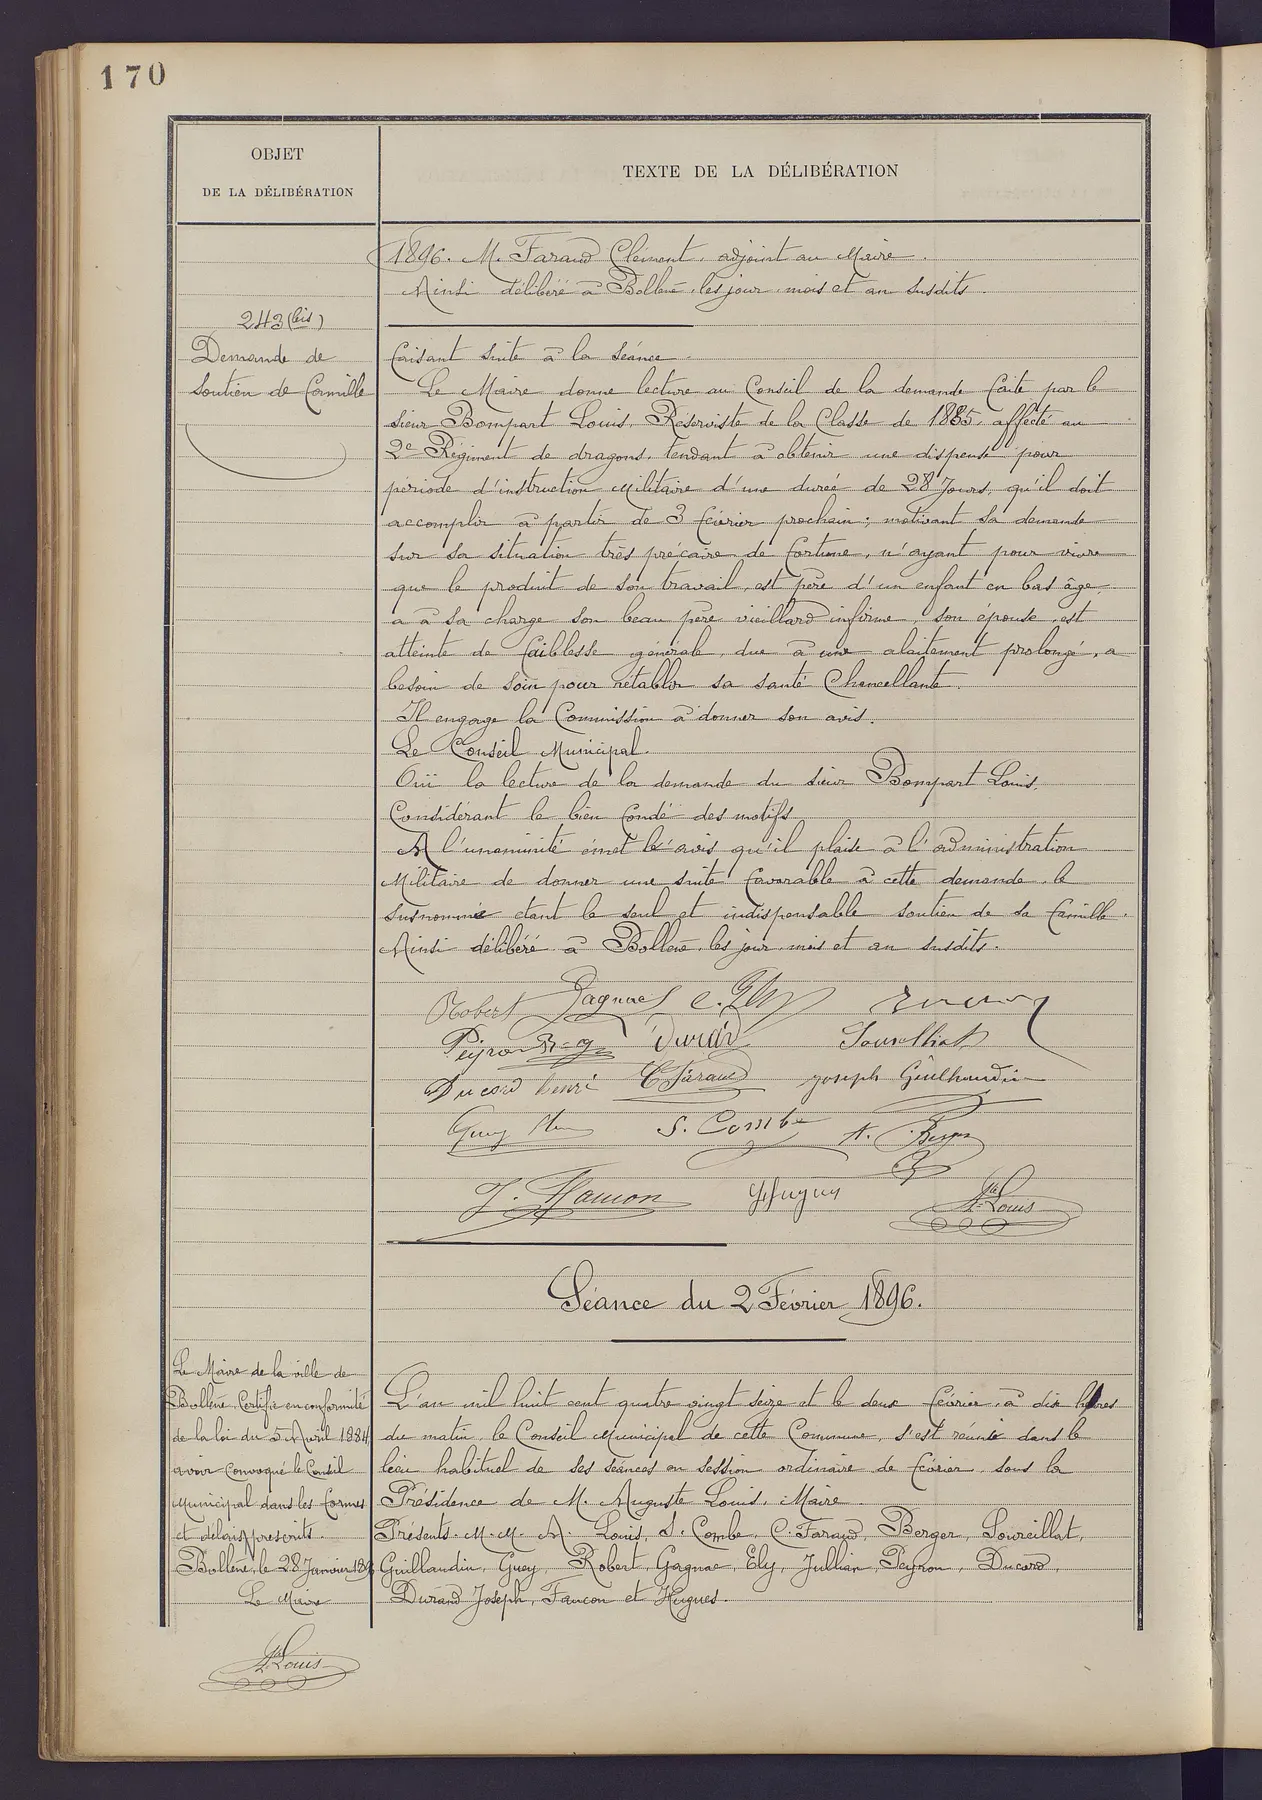 170
OBJET
DE LA DÉLIBÉRATION
TEXTE DE LA DÉLIBÉRATION
1896. M. Faraud Clément, adjoint au Maire.
Ainsi délibéré à Bollène, les jour, mois et an susdits.
243 (bis)
Demande de
soutien de famille
Faisant suite à la séance.
Le Maire donne lecture au Conseil de la demande faite par le
sieur Bompart Louis, Réserviste de la Classe de 1885, affecté au
2e Régiment de dragons, tendant à obtenir une dispense pour
période d'instruction Militaire d'une durée de 28 Jours, qu'il doit
accomplir à partir de 3 février prochain; motivant sa demande
sur sa situation très précaire de fortune, n'ayant pour vivre
que le produit de son travail, est père d'un enfant en bas âge,
a à sa charge son beau père vieillard infirme, son épouse, est
atteinte de faiblesse générale, due à une alaitement prolongé, a
besoin de soin pour rétablir sa santé Chancellante.
Il engage la Commission à donner son avis.
Le Conseil Municipal.
Ouï la lecture de la demande du sieur Bompart Louis,
Considérant le bien fondé des motifs
A l'unanimité émet l'avis qu'il plaise à l'administration
Militaire de donner une suite favorable à cette demande, le
susnommé étant le seul et indispensable soutien de sa famille.
Ainsi délibéré à Bollène, les jour, mois et an susdits.
Robert Gagnac E. Ely
Peyron Durand Soureillat
Ducord henri C. Faraud joseph Guilhaudin
Guey S. Combe A. Berger
J. Faucon Hugues A. Louis
Séance du 2 Février 1896.
Le Maire de la ville de
Bollène, Certifie en conformité
de la loi du 5 Avril 1884,
avoir Convoqué le Conseil
Municipal dans les formes
et délais prescrits.
Bollène, le 28 Janvier 1896
Le Maire
A. Louis
L'an mil huit cent quatre vingt seize et le deux février, à dix heures
du matin, le Conseil Municipal de cette Commune, s'est réunie dans le
lieu habituel de ses séances en session ordinaire de février, sous la
Présidence de M. Auguste Louis, Maire.
Présents. M. M. A. Louis, S. Combe, C. Faraud, Berger, Soureillat,
Guillaudin, Guey, Robert, Gagnac, Ely, Jullian, Peyron, Ducord,
Durand Joseph, Faucon et Hugues.